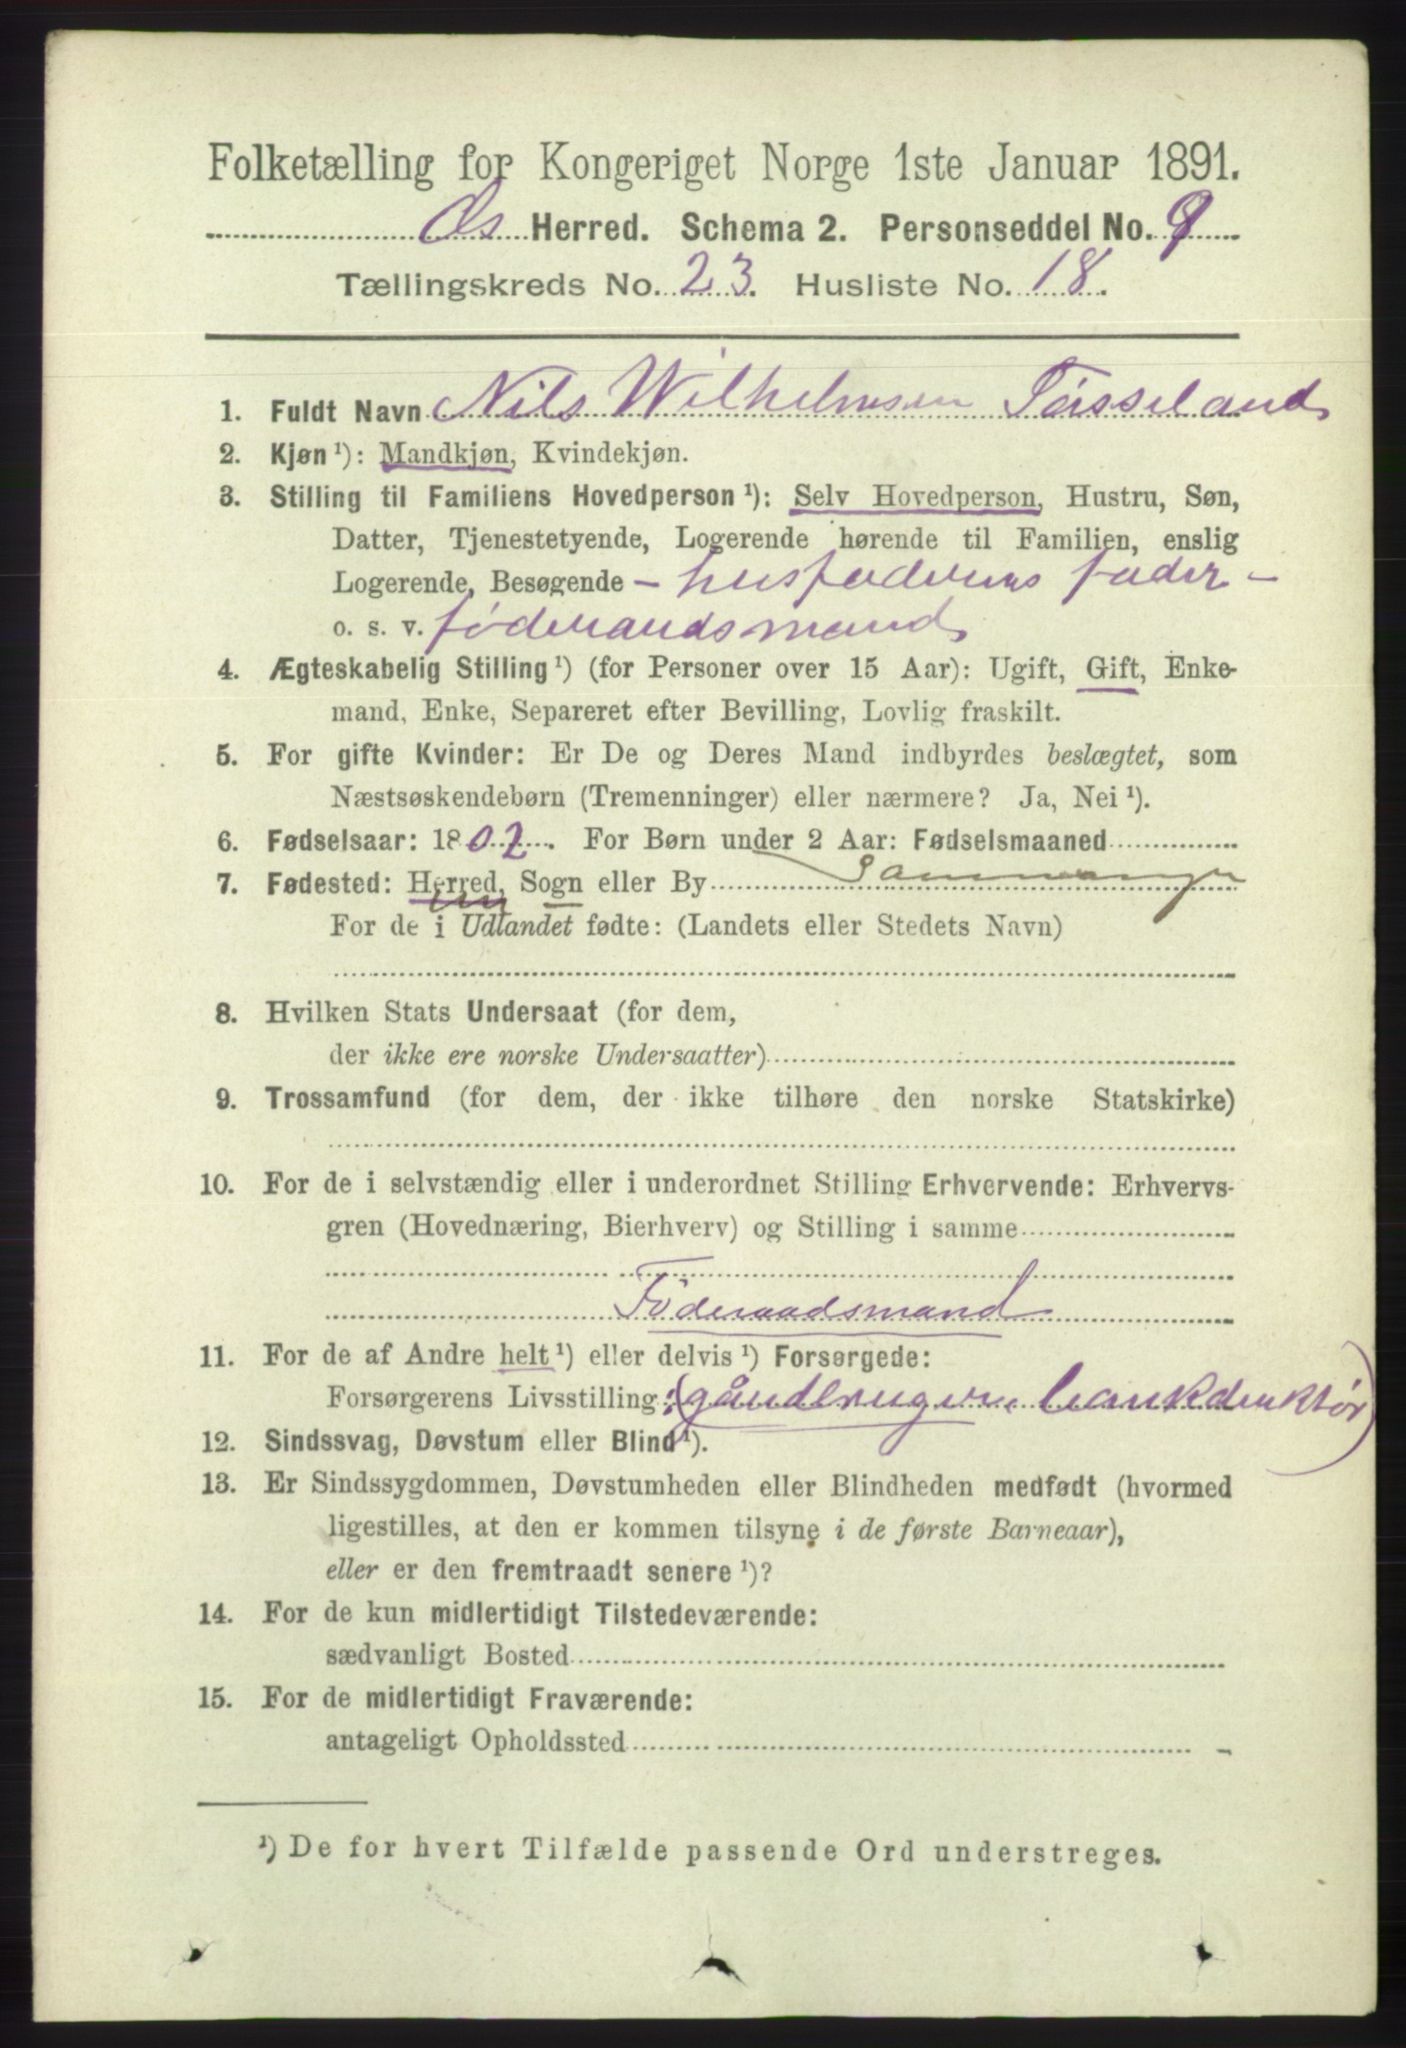 Folketælling for Kongeriget Norge 1ste Januar 1891.
Os Herred. Schema 2. Personseddel No. 9
Tællingskreds No. 23. Husliste No. 18.
1. Fuldt Navn Nils Wilhelmsen Tøsseland,
2. Kjøn ¹): Mandkjøn, Kvindekjøn.
3. Stilling til Familiens Hovedperson ¹): Selv Hovedperson, Hustru, Søn,
Datter, Tjenestetyende, Logerende hørende til Familien, enslig
Logerende, Besøgende – husfaderens fader –
o. s. v. føderaadsmand,
4. Ægteskabelig Stilling ¹) (for Personer over 15 Aar): Ugift, Gift, Enke-
mand, Enke, Separeret efter Bevilling, Lovlig fraskilt.
5. For gifte Kvinder: Er De og Deres Mand indbyrdes beslægtet, som
Næstsøskendebørn (Tremenninger) eller nærmere? Ja, Nei ¹).
6. Fødselsaar: 1802. For Børn under 2 Aar: Fødselsmaaned
7. Fødested: Herred, Sogn eller By Sammanger
For de i Udlandet fødte: (Landets eller Stedets Navn)
8. Hvilken Stats Undersaat (for dem,
der ikke ere norske Undersaatter)
9. Trossamfund (for dem, der ikke tilhøre den norske Statskirke)
10. For de i selvstændig eller i underordnet Stilling Erhvervende: Erhvervs-
gren (Hovednæring, Bierhverv) og Stilling i samme
Føderaadsmand
11. For de af Andre helt ¹) eller delvis ¹) Forsørgede:
Forsørgerens Livsstilling: (gårdbruger, bankdirektør)
12. Sindssvag, Døvstum eller Blind ¹).
13. Er Sindssygdommen, Døvstumheden eller Blindheden medfødt (hvormed
ligestilles, at den er kommen tilsyne i de første Barneaar),
eller er den fremtraadt senere ¹)?
14. For de kun midlertidigt Tilstedeværende:
sædvanligt Bosted
15. For de midlertidigt Fraværende:
antageligt Opholdssted
¹) De for hvert Tilfælde passende Ord understreges.